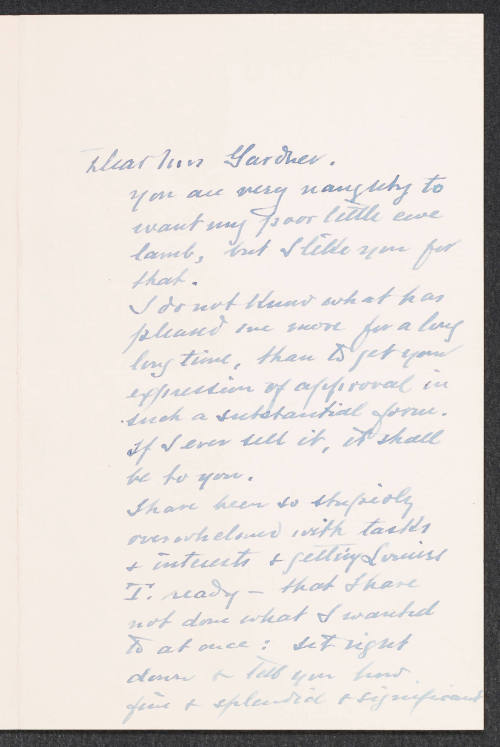 Dear Mrs Gardner.
You are very naughty to
want my poor little ewe
lamb, but I like you for
that.
I do not know what has
pleased me more for a long
long time, than to get your
expression of approval in
such a substantial form.
If I ever sell it, it shall
be to you.
I have been so stupidly
overwhelmed with tasks
& interests & getting Louise
I. ready - that I have
not done what I wanted
to at once: sit right
down & tell you how
fine & splendid & significant